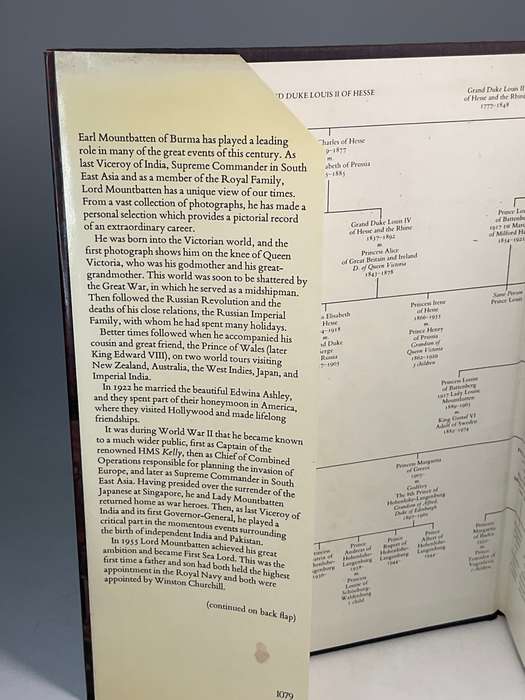 Earl Mountbatten of Burma has played a leading
role in many of the great events of this century. As
last Viceroy of India, Supreme Commander in South
East Asia and as a member of the Royal Family,
Lord Mountbatten has a unique view of our times.
From a vast collection of photographs, he has made a
personal selection which provides a pictorial record
of an extraordinary career.
He was born into the Victorian world, and the
first photograph shows him on the knee of Queen
Victoria, who was his godmother and his great-
grandmother. This world was soon to be shattered by
the Great War, in which he served as a midshipman.
Then followed the Russian Revolution and the
deaths of his close relations, the Russian Imperial
Family, with whom he had spent many holidays.
Better times followed when he accompanied his
cousin and great friend, the Prince of Wales (later
King Edward VIII), on two world tours visiting
New Zealand, Australia, the West Indies, Japan, and
Imperial India.
In 1922 he married the beautiful Edwina Ashley,
and they spent part of their honeymoon in America,
where they visited Hollywood and made lifelong
friendships.
It was during World War II that he became known
to a much wider public, first as Captain of the
renowned HMS Kelly, then as Chief of Combined
Operations responsible for planning the invasion of
Europe, and later as Supreme Commander in South
East Asia. Having presided over the surrender of the
Japanese at Singapore, he and Lady Mountbatten
returned home as war heroes. Then, as last Viceroy of
India and its first Governor-General, he played a
critical part in the momentous events surrounding
the birth of independent India and Pakistan.
In 1955 Lord Mountbatten achieved his great
ambition and became First Sea Lord. This was the
first time a father and son had both held the highest
appointment in the Royal Navy and both were
appointed by Winston Churchill.
(continued on back flap)
1079
DUKE LOUIS II OF HESSE
Grand Duke Louis II
of Hesse and the Rhine
1777-1848
Charles of Hesse
-1877
m.
abeth of Prussia
-1885
Grand Duke Louis IV
of Hesse and the Rhine
1837-1892
m.
Princess Alice
of Great Britain and Ireland
D. of Queen Victoria
1843-1878
Prince Lou
of Battenbe
1917
of Milford Ha
1854-1921
Elisabeth
Hesse
-1918
m.
Duke
erge
Russia
-1905
Princess Irene
of Hesse
1866-1953
m.
Prince Henry
of Prussia
Grandson of
Queen Victoria
1862-1929
3 children
Same Person
Prince Louis
Princess Louise
of Battenberg
1917 Lady Louise
Mountbatten
1889-1965
m.
King Gustaf VI
Adolf of Sweden
1882-1974
Princess Margarita
of Greece
1905-
m.
Godfrey
The 8th Prince of
Hohenlohe-Langenburg
Grandson of Alfred,
Duke of Edinburgh
1897-1960
Prince
Andreas of
Hohenlohe-
Langenburg
1938-
m.
Princess
Louise of
Schönburg-
Waldenburg
1 child
Prince
Rupert of
Hohenlohe-
Langenburg
1944-
Prince
Albert of
Hohenlohe-
Langenburg
1944-
Princess
Margarita
of Baden
1932-
m.
Prince
Tomislav of
Yugoslavia
2 children